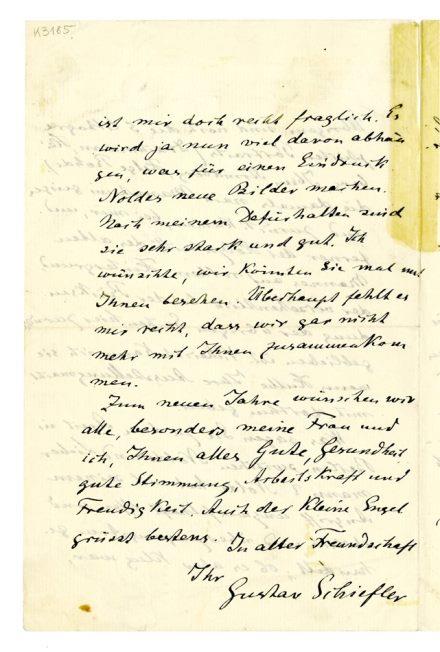 K3185.
ist mir doch recht fraglich. Es
wird ja nun viel davon abhän
gen, was für einen Eindruck
Noldes neue Bilder machen.
Nach meinem Dafürhalten sind
sie sehr stark und gut. Ich
wünschte, wir könnten sie mal mit
Ihnen besehen. Überhaupt fehlt es
mir recht, dass wir gar nicht
mehr mit Ihnen zusammenkom
men.
Zum neuen Jahre wünschen wir
alle, besonders meine Frau und
ich, Ihnen alles Gute, Gesundheit,
gute Stimmung, Arbeitskraft und
Freudigkeit. Auch der kleine Engel
grüsst bestens. In alter Freundschaft
Ihr
Gustav Schiefler